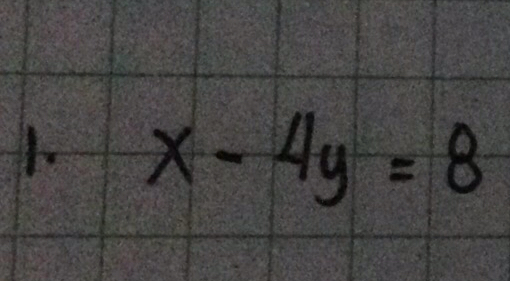 1. x - 4y = 8